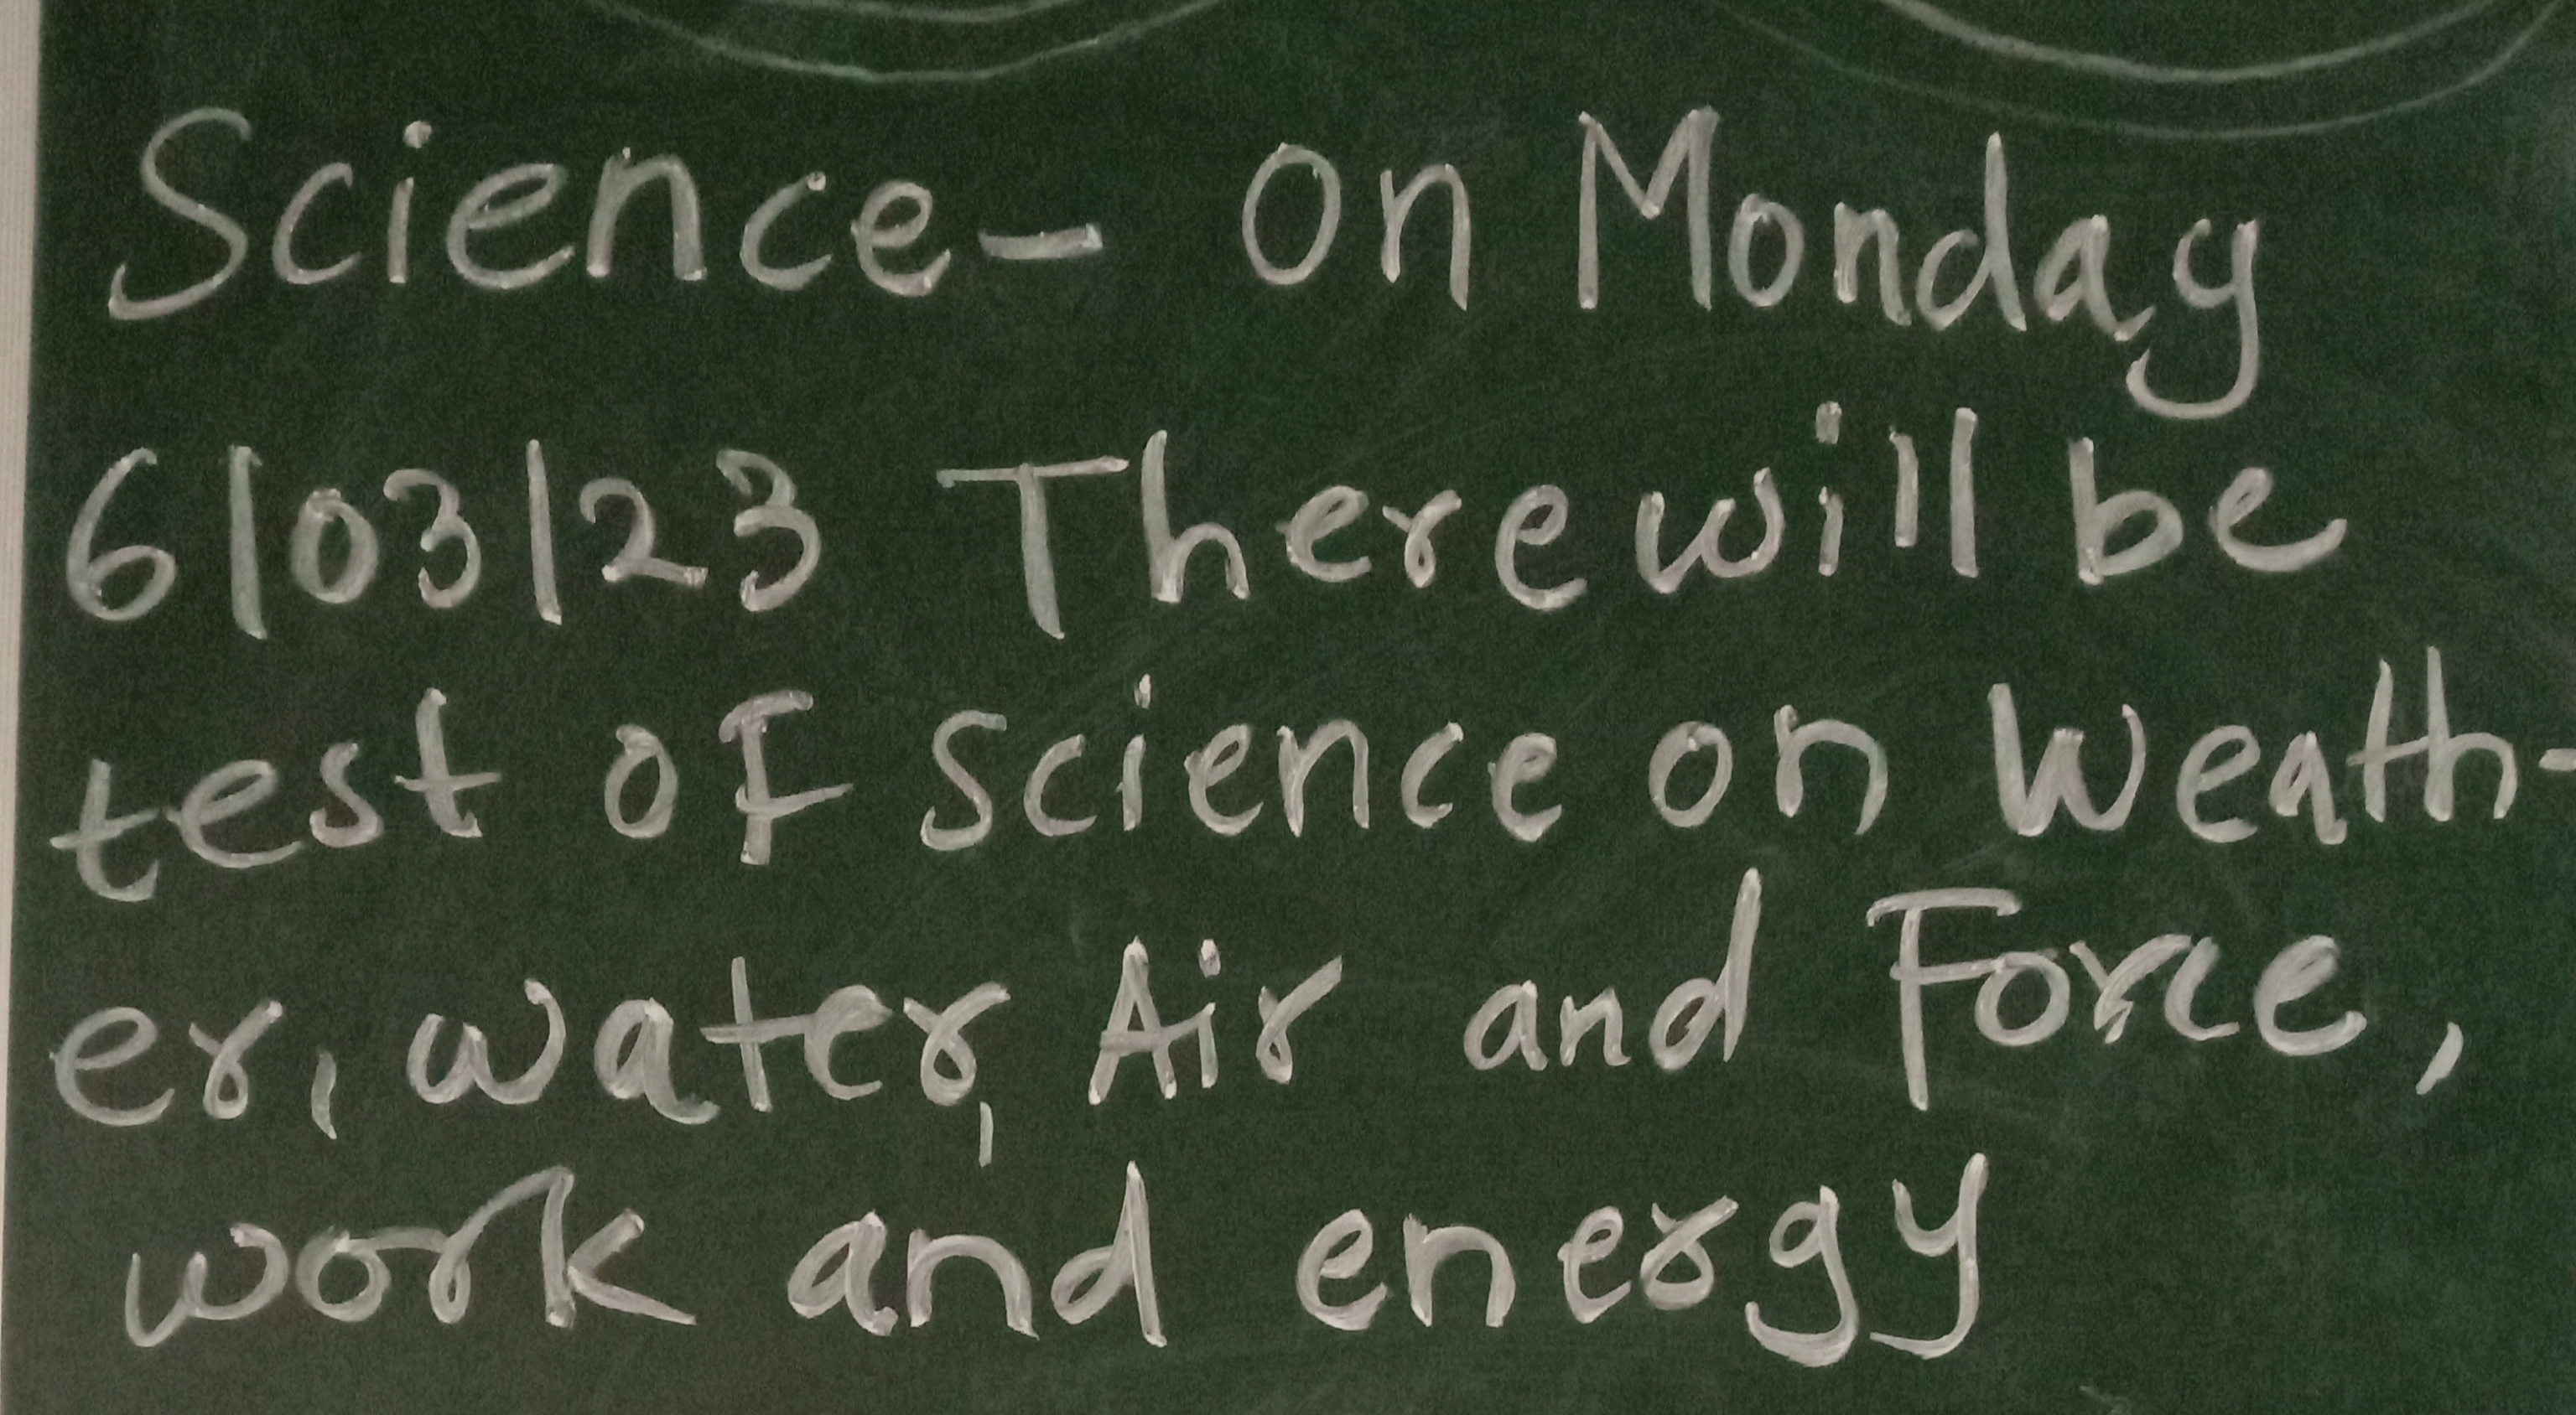 Science- On Monday
6/03/23 There will be
test of science on Weath-
er, water, Air and Force,
work and energy